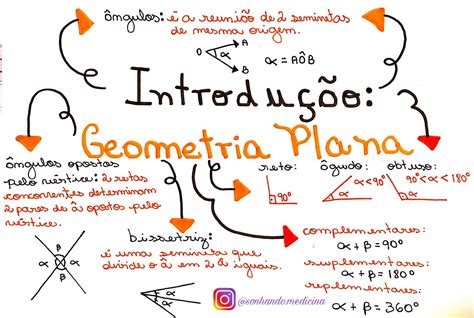 ângulos: é a reunião de 2 semiretas
de mesma origem.
A
O
α
B
α = AÔB
Introdução:
Geometria Plana
ângulos opostos
pelo vértice: 2 retas
concorrentes determinam
2 pares de â opostos pelo
vértice.
β
α α
β
bissetriz:
é uma semireta que
divide o â em 2 â iguais.
reto:
90°
âgudo:
α<90°
α
obtuso:
90°<α<180°
α
complementares:
α + β = 90°
suplementares
α + β = 180°
replementares
α + β = 360°
@sonhando.medicina